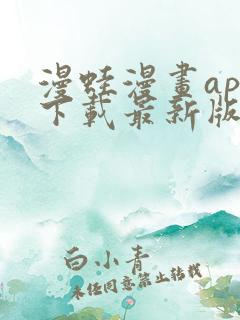 漫蛙漫畫ap
下載最新版
白小青
未经同意禁止转载